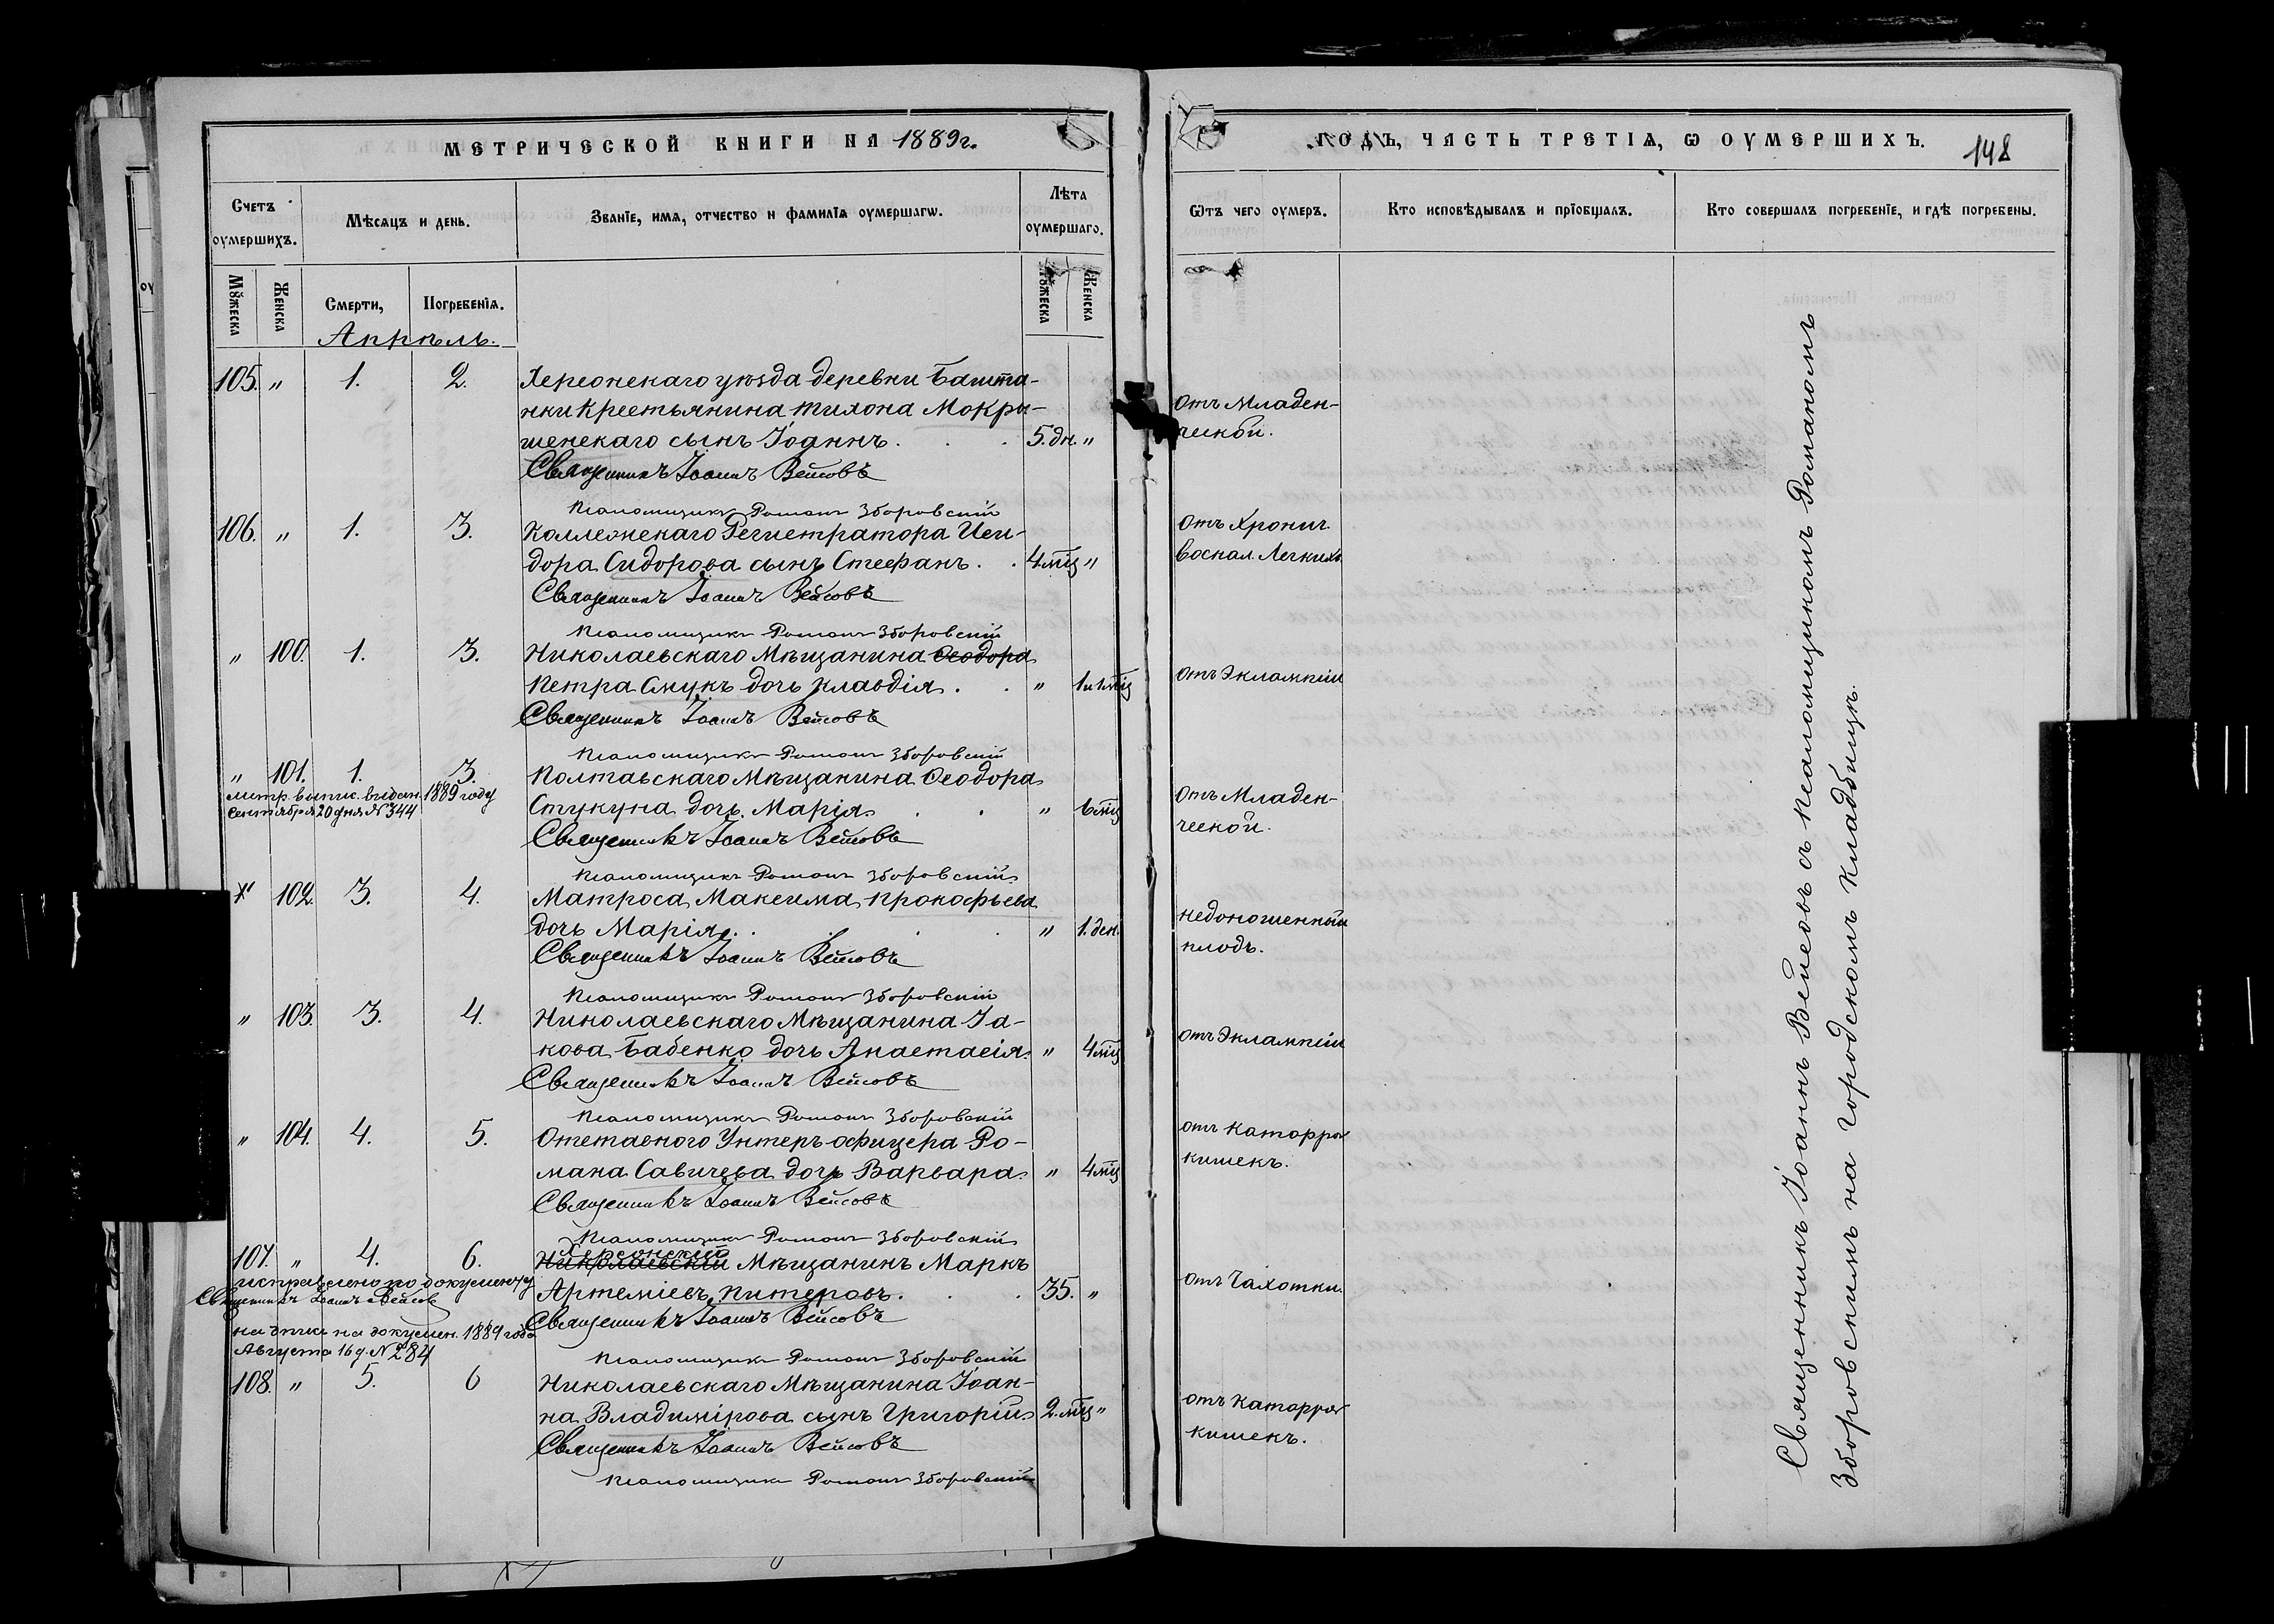 МЕТРИЧЕСКОЙ КНИГИ НА 1889 г.
Счетъ оумершихъ.
Мѣсяцъ и день.
Званїе, имя, отчество и фамилїя оумершагѡ.
Лѣта оумершаго.
Мꙋжеска
Женска
Смерти,
Погребенїя.
Мꙋжеска
Женска
Апрѣль.
105. " 1. 2. Херсонскаго уѣзда деревни Башта-
нки Крестьянина Тихона Мокры-
шенскаго сынъ Іоаннъ. 5. дн. "
Священникъ Іоаннъ Вейсовъ
Псаломщикъ Романъ Зборовскій
106. " 1. 3. Коллежскаго Регистратора Иси-
дора Сидорова сынъ Стефанъ. 4 мѣц "
Священникъ Іоаннъ Вейсовъ
Псаломщикъ Романъ Зборовскій
" 100. 1. 3. Николаевскаго Мѣщанина Ѳеодора
Петра Смукъ дочь Клавдія. " 1 и 1 мѣц
Священникъ Іоаннъ Вейсовъ
Псаломщикъ Романъ Зборовскій
" 101. 1. 3. Полтавскаго Мѣщанина Ѳеодора
метр. выпис. выдан. 1889 году
Сентября 20 дня N 344
Стукуна дочь Марія. " 6 мѣц
Священникъ Іоаннъ Вейсовъ
Псаломщикъ Романъ Зборовскій
" 102. 3. 4. Матроса Максима Прокофьева
дочь Марія. " 1. ден.
Священникъ Іоаннъ Вейсовъ
Псаломщикъ Романъ Зборовскій
" 103. 3. 4. Николаевскаго Мѣщанина Іа-
кова Бабенко дочь Анастасія. " 4 мѣц
Священникъ Іоаннъ Вейсовъ
Псаломщикъ Романъ Зборовскій
" 104. 4. 5. Отставного Унтеръ-офицера Ро-
мана Савичева дочь Варвара. " 4 мѣц
Священникъ Іоаннъ Вейсовъ
Псаломщикъ Романъ Зборовскій
Херсонскій
107. " 4. 6. Николаевскій Мѣщанинъ Маркъ
исправлено по документу
Священникъ Іоаннъ Вейсовъ
Артеміевъ Питеровъ. 35. "
Священникъ Іоаннъ Вейсовъ
на докумен. 1889 года
Августа 16 д. N 284
Псаломщикъ Романъ Зборовскій
108. " 5. 6 Николаевскаго Мѣщанина Іоан-
на Владимірова сынъ Григорій. 2. мѣц "
Священникъ Іоаннъ Вейсовъ
Псаломщикъ Романъ Зборовскій
ГОДЪ, ЧАСТЬ ТРЕТІЯ, Ѡ ОУМЕРШИХЪ.
148
Ѿтъ чего оумеръ.
Кто исповѣдывалъ и прїобщалъ.
Кто совершалъ погребенїе, и гдѣ погребены.
отъ Младен-
ческой.
отъ Хронич.
воспал. Легкихъ
отъ Экламисіи
отъ Младен-
ческой.
недоношенный
плодъ.
отъ Экламисіи
отъ катарра
кишекъ.
отъ Чахотки.
отъ катарра
кишекъ.
Священникъ Іоаннъ Вейсовъ съ псаломщикомъ Романомъ
Зборовскимъ на городскомъ кладбищѣ.